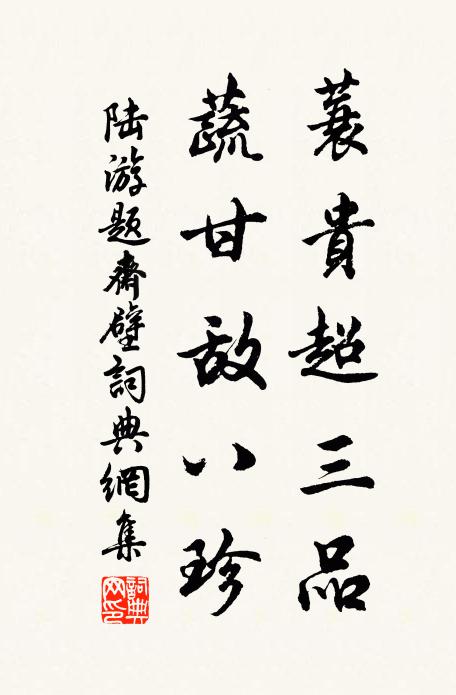 蓑貴超三品
蔬甘敌八珍
陆游题齋壁詞典網集
詞典网印